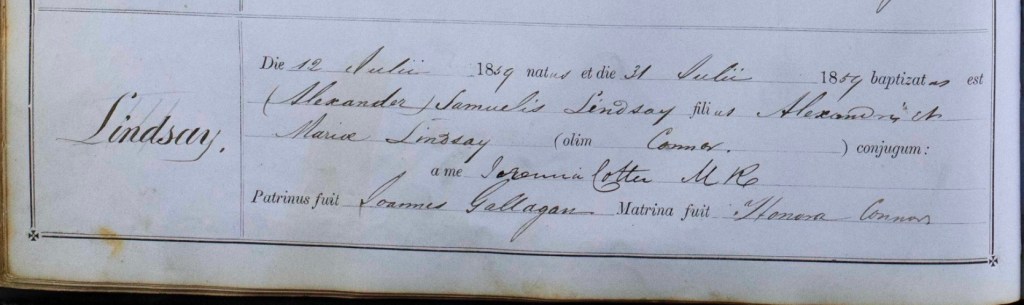 Lindsay.
Die 12 Julii 1859 natus et die 31 Julii 1859 baptizatus est
(Alexander) Samuelis Lindsay filius Alexandrii et
Mariæ Lindsay (olim Connor.) conjugum:
a me Cotter
Patrinus fuit Joannes Gallagan Matrina fuit Honora Connor